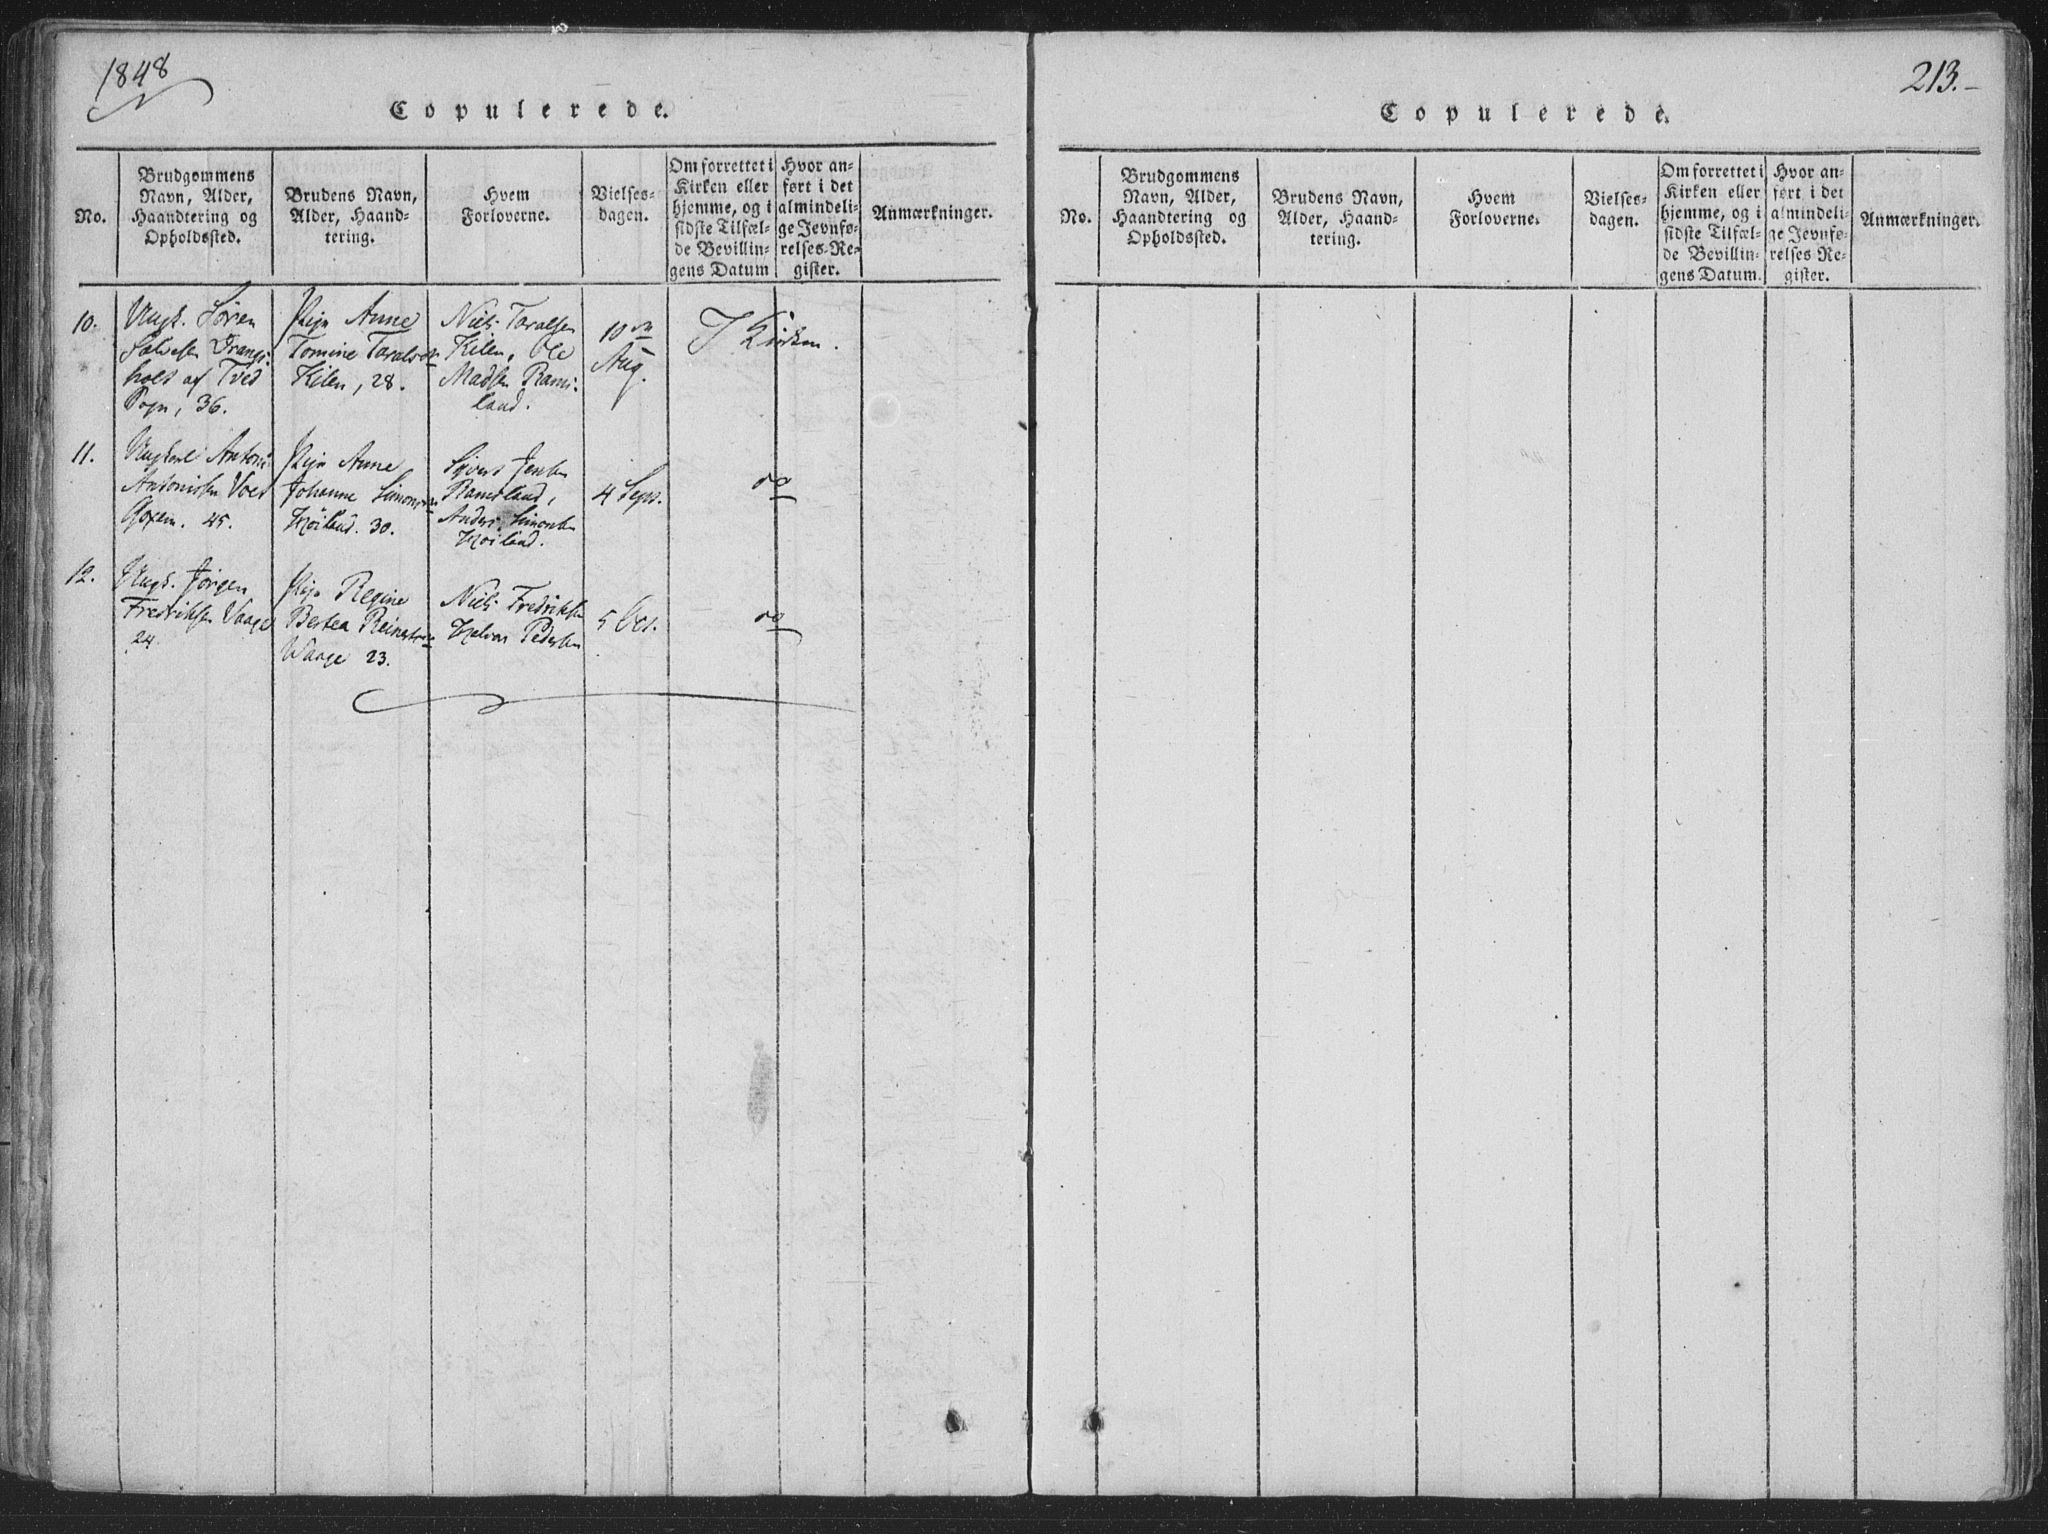 1848
Copulerede.
No.
Brudgommens
Navn, Alder,
Haandtering og
Opholdssted.
Brudens Navn,
Alder, Haand-
tering.
Hvem
Forloverne.
Vielses-
dagen.
Om forrettet i
Kirken eller
hjemme, og i
sidste Tilfæl-
de Bevillin-
gens Datum
Hvor an-
ført i det
almindeli-
ge Jevnfø-
relses-Re-
gister.
Anmærkninger.
10.
Ungk. Søren
Salvesen Drangs
holt af Tved
Sogn, 36.
Pige Anne
Tomine Taralsen
Kilen, 28.
Niels Taralsen
Kilen, Ole
Madsen Rams-
land.
10de
Aug.
I Kirken.
11.
Ungkarl Antoni
Antonisen
45.
Pige Anne
Johanne Simons
Høiland. 30.
Sivert Jensen
Ramsland,
Anders Simonsen
Høiland.
4 Sept.
do
12.
Ungk. Jørgen
Fredriksen Vaage
24.
Pige Regine
Bertea
Waage 23.
Niels Fredriksen
Halvor Pedersen
5 Oct.
do
213.-
Copulerede.
No.
Brudgommens
Navn, Alder,
Haandtering og
Opholdssted.
Brudens Navn,
Alder, Haand-
tering.
Hvem
Forloverne.
Vielses-
dagen.
Om forrettet i
Kirken eller
hjemme, og i
sidste Tilfæl-
de Bevillin-
gens Datum.
Hvor an-
ført i det
almindeli-
ge Jevnfø-
relses-Re-
gister.
Anmærkninger.